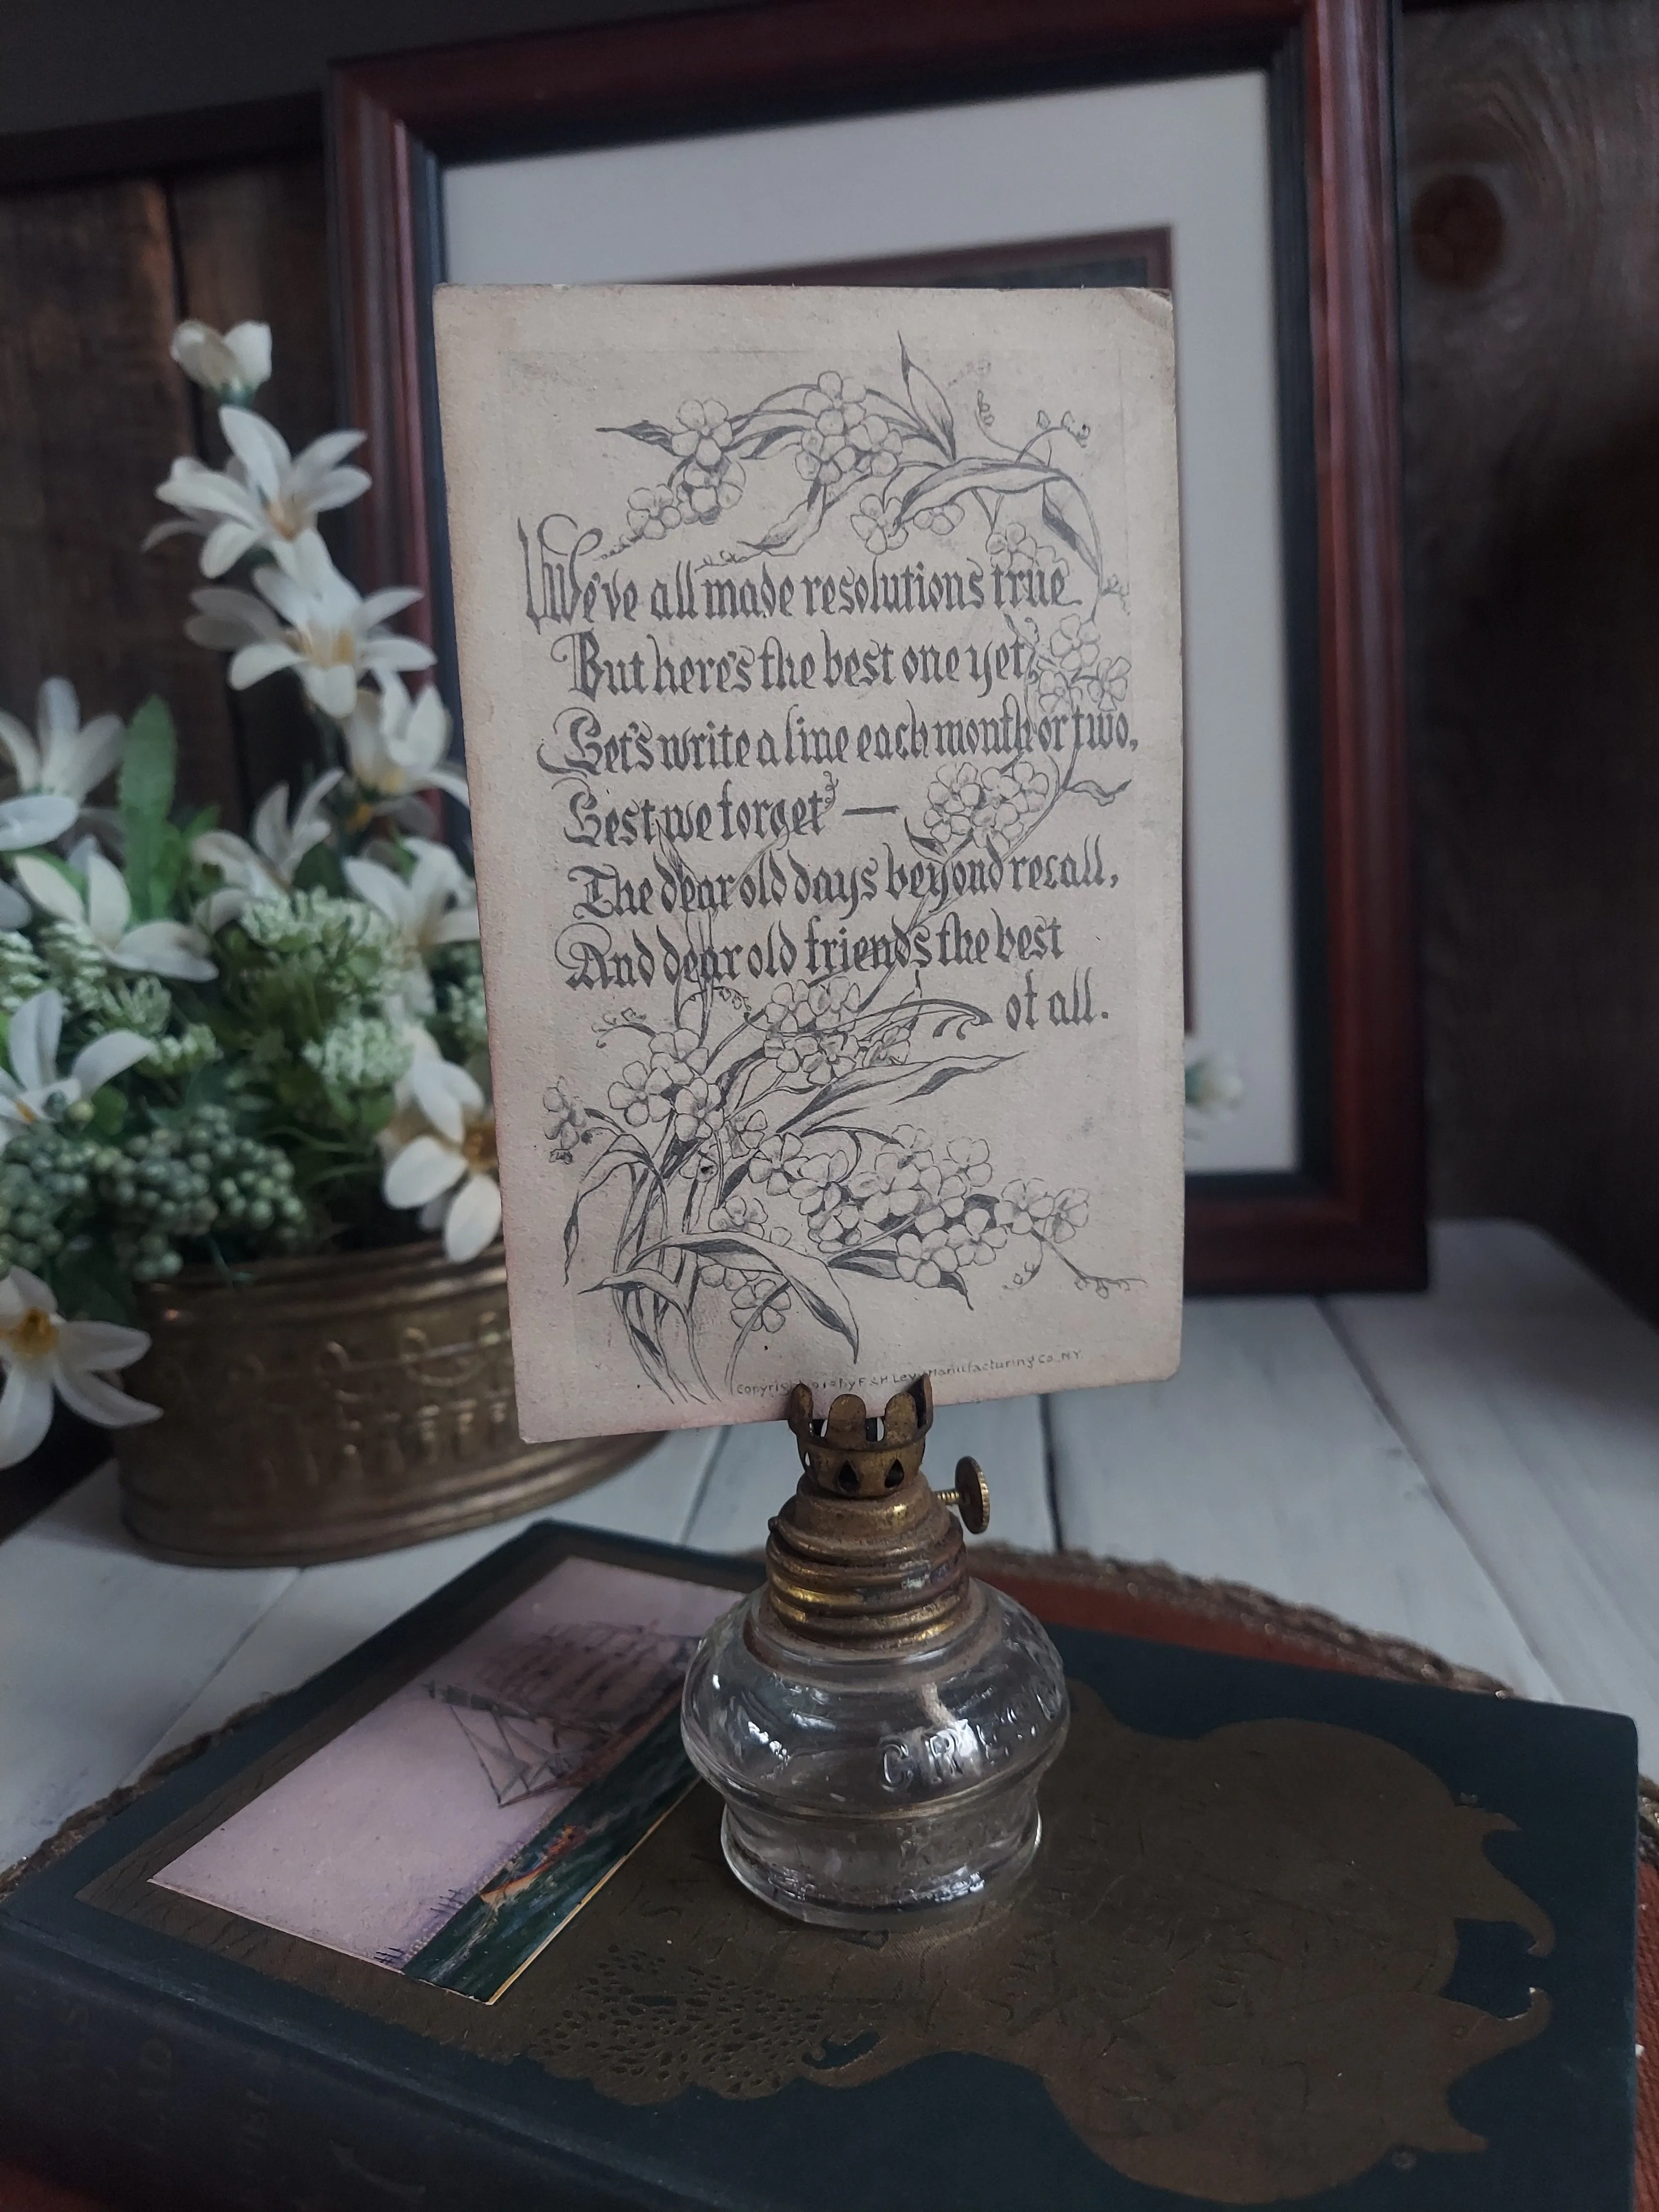 We've all made resolutions true
But here's the best one yet,
Let's write a line each month or two,
Lest we forget —
The dear old days beyond recall,
And dear old friends the best
of all.
Copyright by F & H. Levy Manufacturing Co., N.Y.
CRES